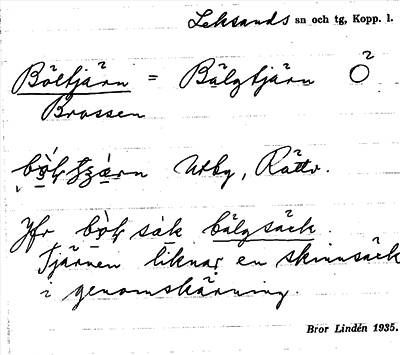 Leksands sn och tg, Kopp. l.
Böltjärn = Bälgtjärn
Brossen
Utby, Rättv.
Jfr säk bälgsäck.
Tjärnen liknar en skinnsäck
i genomskärning.
Bror Lindén 1935.